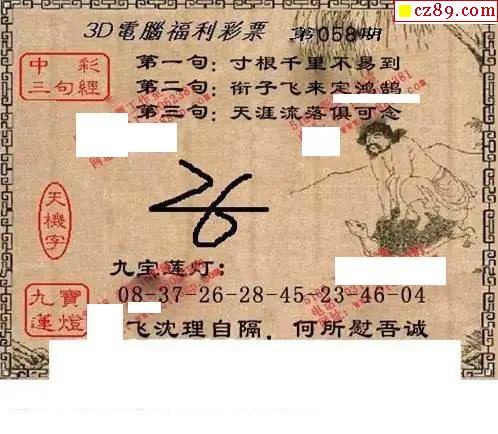 cz89.com
3D電腦福利彩票 第058期
中彩
三句經
第一句：寸根千里不易到
第二句：衔子飞来定鸿鹄
第三句：天涯流落俱可念
天機字
26
九宝莲灯：
九寶
蓮燈
08-37-26-28-45-23-46-04
飞沈理自隔，何所慰吾诚